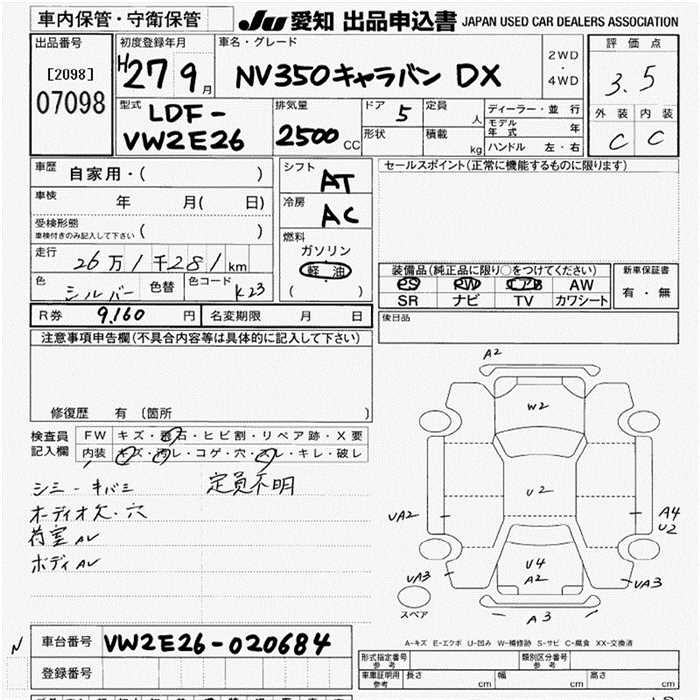 車内保管・守衛保管 JU 愛知 出品申込書 JAPAN USED CAR DEALERS ASSOCIATION
出品番号 初度登録年月 車名・グレード 2WD・4WD 評価点
[2098] H 27 9月 NV350キャラバン DX 3.5
07098 型式 LDF-VW2E26 排気量 2500 CC ドア 5 定員 人 ディーラー・並行 外装 内装
形状 積載 kg モデル年式 年 C C
ハンドル 左・右
車歴 自家用・( ) シフト AT セールスポイント(正常に機能するものに限ります)
車検 年 月( 日) 冷房 AC
受検形態 車検付きのみ記入して下さい ( ) 燃料 ガソリン
走行 26万1千281km 軽油 装備品(純正品に限り○をつけてください) 新車保証書
色 シルバー 色替 色コード K23 ( ) PS PW エアB AW 有・無
SR ナビ TV カワシート
R券 9,160 円 名変期限 月 日 後日品
注意事項申告欄(不具合内容等は具体的に記入して下さい)
修復歴 有 (箇所 )
検査員記入欄 FW キズ・飛石・ヒビ割・リペア跡・X要
内装 キズ・汚レ・コゲ・穴・スレ・キレ・破レ
シミ－キバミ 定員不明
オーディオ欠・穴
荷室AU
ボディAU
A2
W2
U2
UA2 A4
U2
U4
A2
UA3 UA3
スペア A3
A-キズ E-エクボ U-凹み W-補修跡 S-サビ C-腐食 XX-交換済
N 車台番号 VW2E26-020684
登録番号
形式指定番号 参考 類別区分番号 参考
車庫証明用 参考 長さ cm 幅 cm 高さ cm